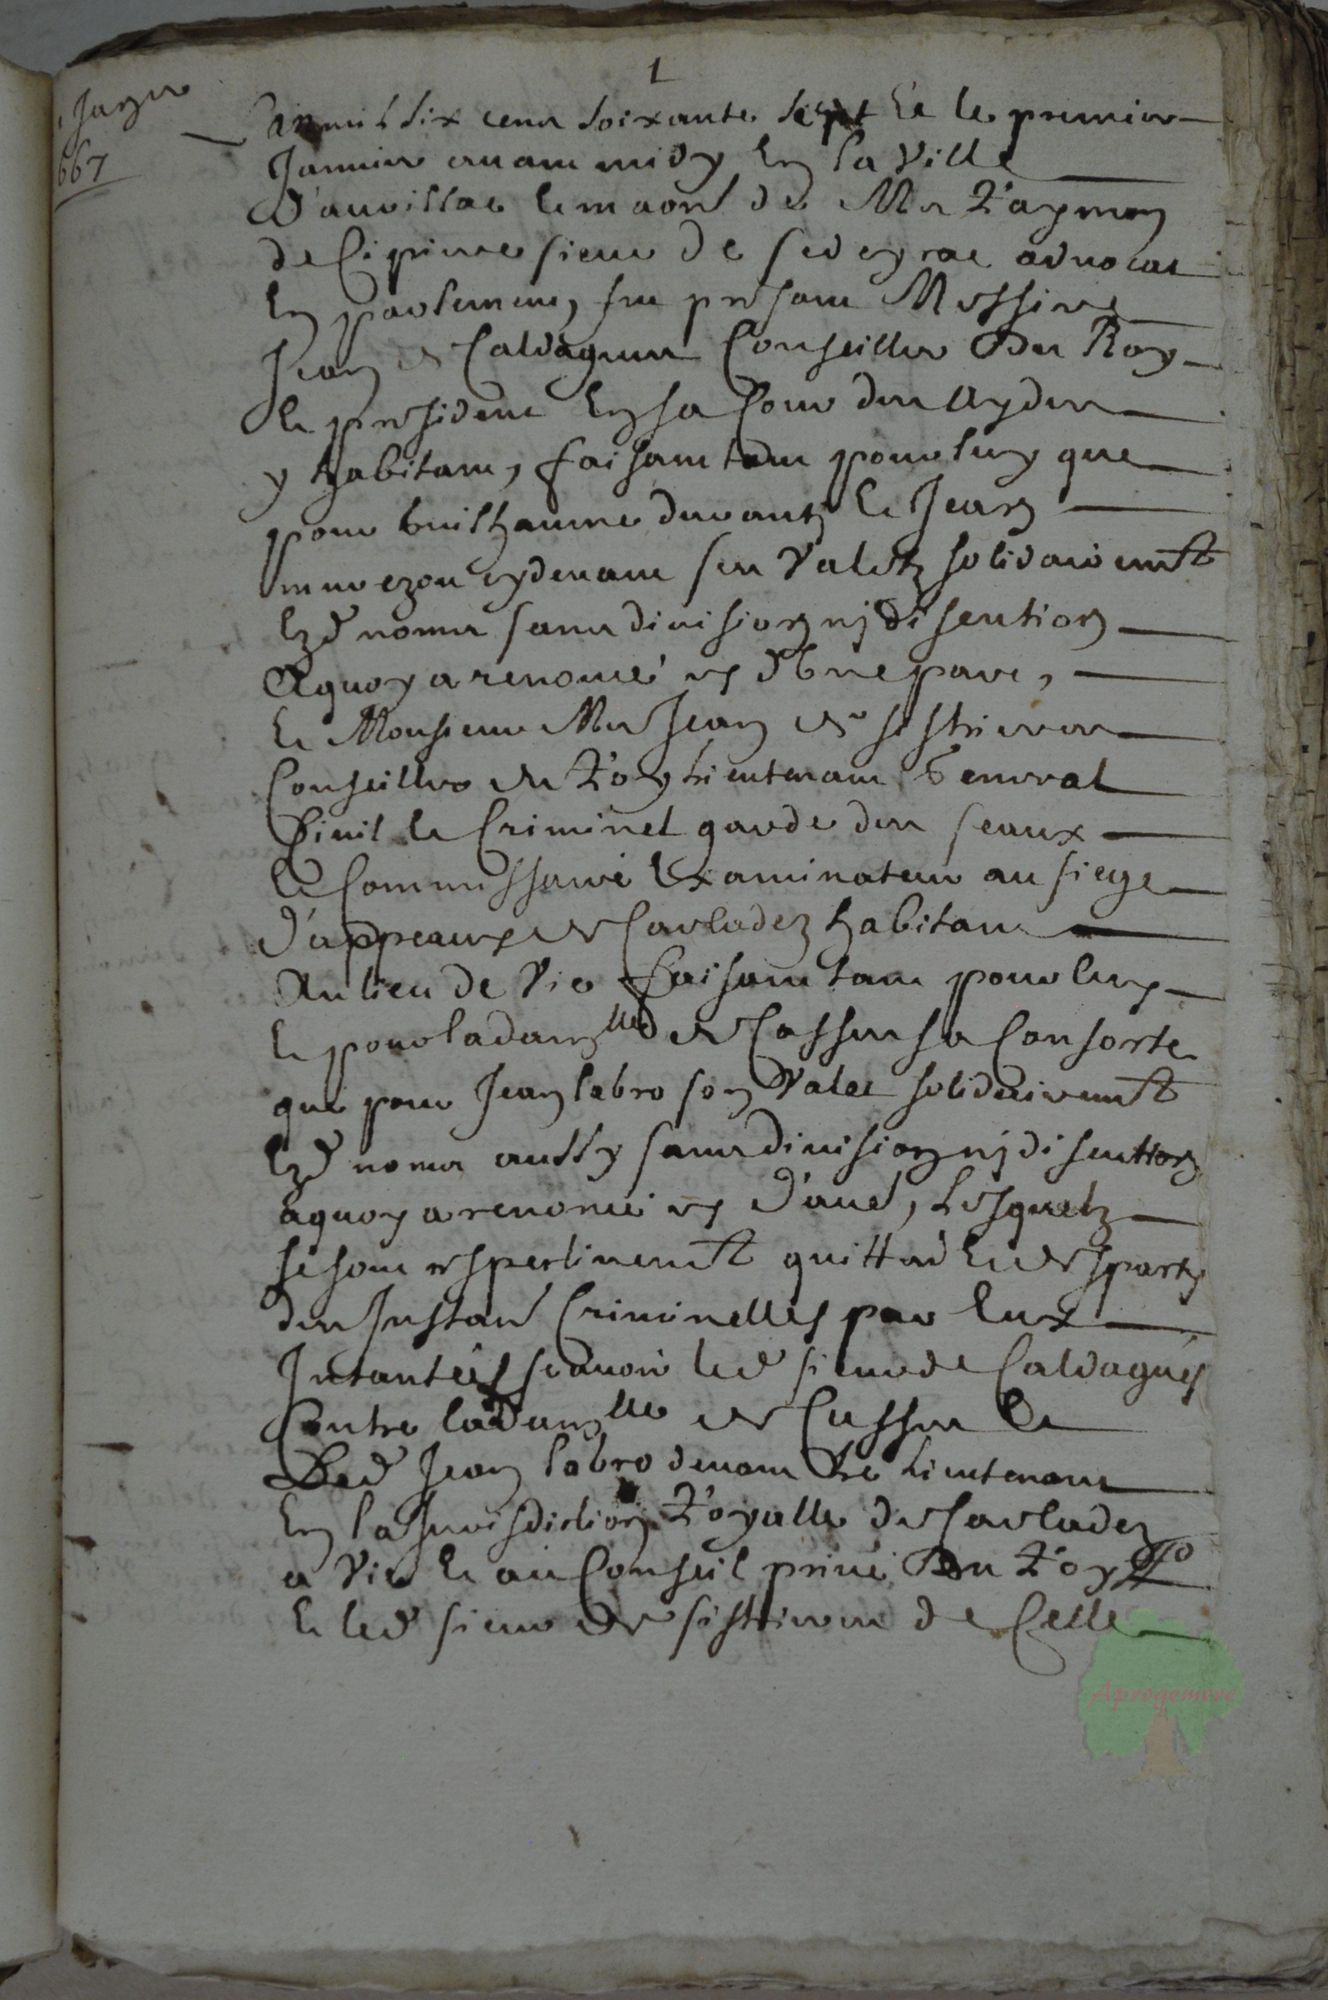 1
1 Janvier
667
L'an mil six cens soixante sept et le premier
Janvier avant midy en la ville
D'aurillac et maon de Mr Raymon
de Cipiere sieur de sedeyrac advocat
En parlement, fut presant Messire
Jean de Caldaguer Conseiller Du Roy
et president En sa Cour des Aydes
y habitant, faisant tant pour luy que
pour Guilhaume durant et Jean
cydevant ses Valetz solidairemt
Esd noms sans division ny discution
A quoy a renoncé et d'une part,
Et Monsieur Mr Jean de sistrieres
Conseiller du Roy Lieutenant General
Civil et Criminel garde des seaux
et Commissaire Examinateur au siege
d'appeaux de Carladez habitant
Au lieu de Vic faisant tant pour luy
Et pour la damlle de Casses sa Consorte
que pour Jean labro son Valet solidairemt
Esd noms aussy sans division ny discution
a quoy a renoncé et d'aue, Lesquelz
se sont respectivemt quittés et desparty
des Instan Criminelles par Eux
Intantées scavoir led sieur de Caldagues
Contre la damlle de Casses et
Led Jean labro devant le Lieutenant
En la Jurisdiction Royalle de Carladez
a Vic et au Conseil privé Du Roy
Et led sieur de sistrieres de Celle
Aprogemere